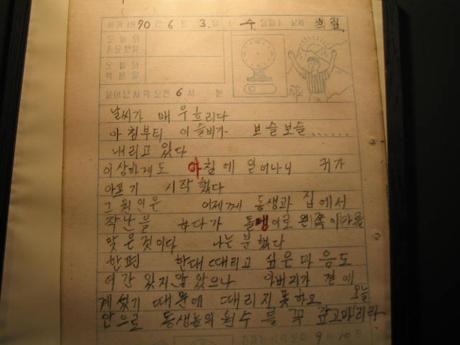 70 6 3. 수 흐림
6시
날씨가 매우흐리다
아침부터 이슬비가 보슬보슬......
내리고 있다
이상하게도 아침에 일어나니 귀가
아프기 시작했다
그 원인은 어제께 동생과 집에서
작난을 하다가 돌맹이로 왼쪽이마를
맞은것이다 나는 분했다
한편 한대 때리고 싶은 마음도
여간 있지 않았으나 아버지가 곁에
계셨기 때문에 때리지 못하고 오늘
안으로 동생놈의 원수를 꼭 갚고마리라